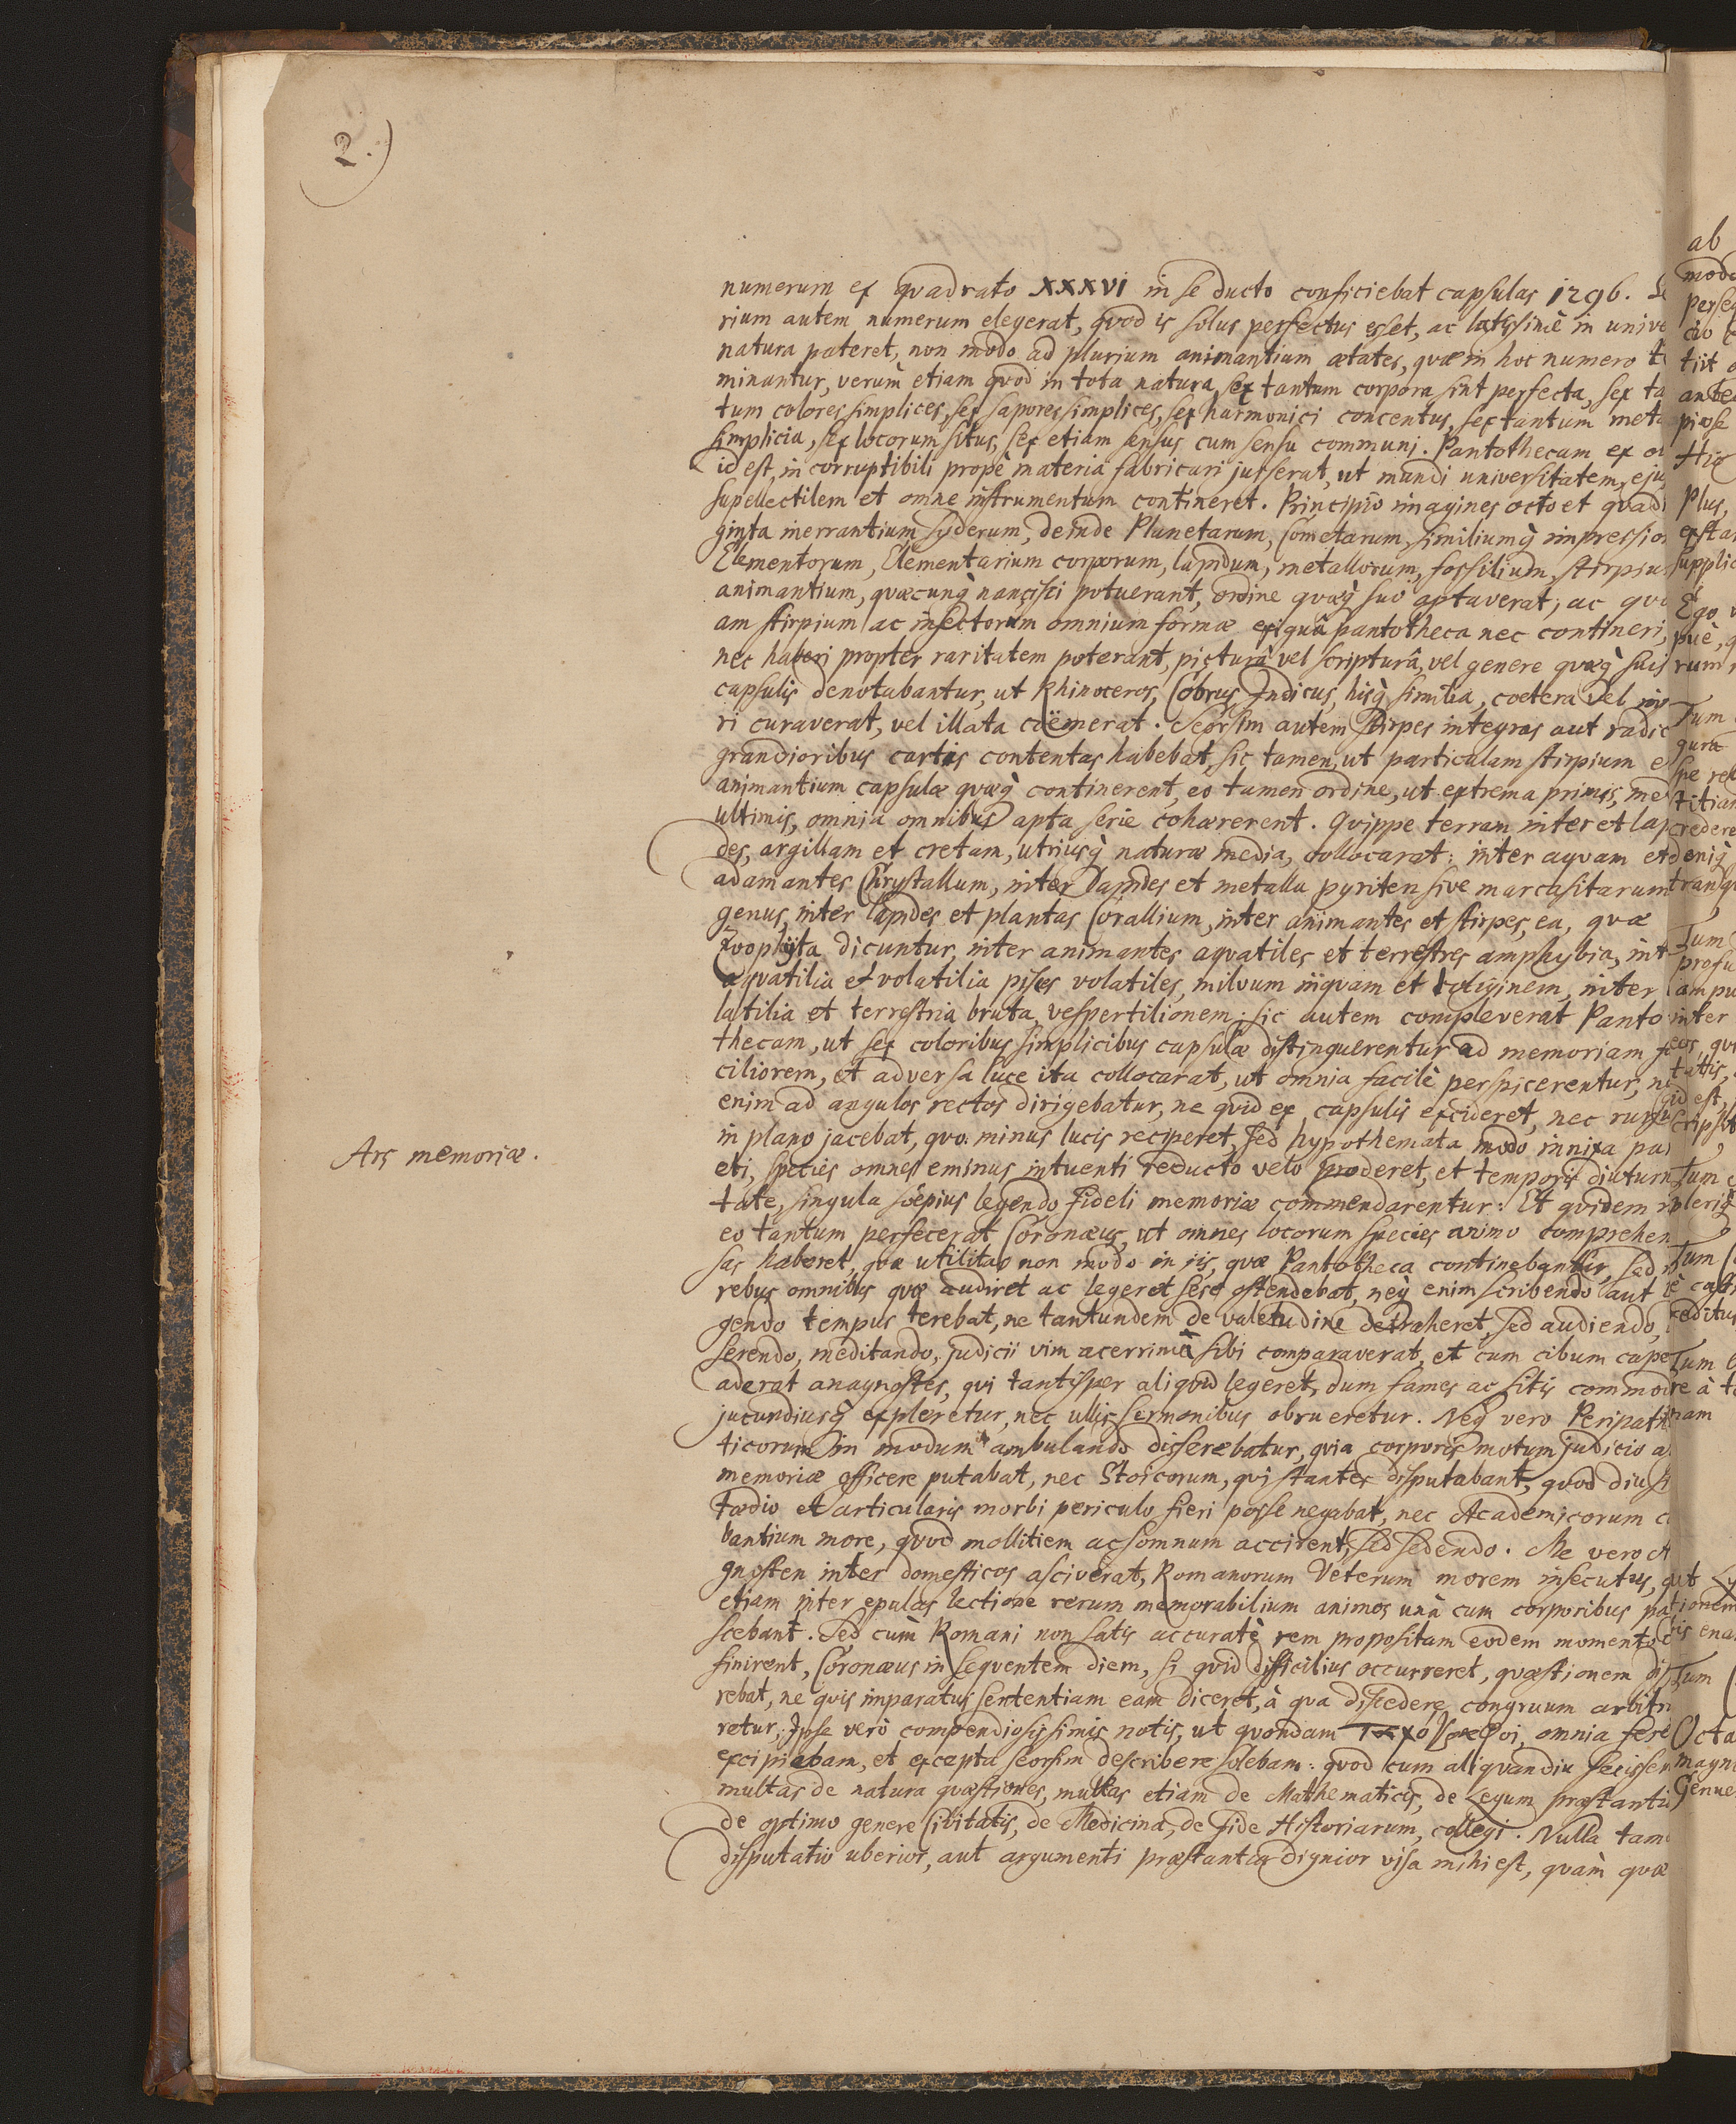 2.)
numerum ex quadrato XXXVI in se ducto conficiebat capsulas 1296. Se
rium autem numerum elegerat, quod is solus perfectus esset, ac latissimè in unive
natura pateret, non modo ad plurium animantium ætates, quæ in hoc numero te
minantur, verum etiam quod in tota natura sex tantum corpora sint perfecta, sex ta
tum colores simplices, sex sapores simplices, sex harmonici concentus, sex tantum meta
simplicia, sex locorum situs, sex etiam sensus cum sensu communi. Pantothecam ex ol
id est, in corruptibili propè materia fabricari jusserat, ut mundi universitatem, eju
supellectilem et omne instrumentum contineret. Principio imagines octo et quadr
ginta inerrantium syderum, deinde Planetarum, Cometarum, similiumq́ impressio
Elementorum, Elementarium corporum, lapidum, metallorum, fossilium, stirpiu
animantium, quæcunq́ nancisci potuerant, ordine quæq́ suo aptaverat; ac quo
am stirpium ac insectorum omnium formæ exiguâ pantotheca nec contineri,
nec haberi propter raritatem poterant, picturâ vel scripturâ, vel genere quæq́ suis
capsulis denotabantur, ut Rhinoceros, Cobrus Indicus, hisq́ similia, coetera vel inv
ri curaverat, vel illata coëmerat. Seorsim autem stirpes integras aut radic
grandioribus cartis contentas habebat, sic tamen, ut particulam stirpium e
animantium capsulæ quæq́ continerent, eo tamen ordine, ut extrema primis, me
ultimis, omnia omnibus apta serie cohærerent. Quippe terram inter et lap
des, argillam et cretam, utriusq́ naturæ media, collocarat: inter aquam et
adamantes Chrystallum, inter Lapides et metalla pyriten sive marcasitarum
genus, inter lapides et plantas Corallium, inter animantes et stirpes, ea, quæ
Zoophyta dicuntur, inter animantes aquatiles et terrestres amphybia, int
aquatilia et volatilia pisces volatiles, milvum inquam et loliginem, inter
latilia et terrestria bruta, vespertilionem: sic autem compleverat Panto
thecam, ut sex coloribus simplicibus capsulæ distinguerentur ad memoriam fa
ciliorem, et adversa luce ita collocarat, ut omnia facilè perspicerentur, ne
enim ad angulos rectos dirigebatur, ne quid ex capsulis excideret, nec rursu
in plano jacebat, quo minus lucis reciperet, sed hypothemata modo innixa pari
Ars memoriæ.
eti, species omnes eminus intuenti reducto velo proderet, et temporis diuturn
tate, singula sæpius legendo fideli memoriæ commendarentur. Et quidem in
eo tantum perfecerat Coronæus, ut omnes locorum species animo comprehen
sas haberet, quæ utilitas non modo in iis, quæ Pantotheca continebantur, sed i
rebus omnibus quæ audiret ac legeret sese ostendebat, neq́ enim scribendo aut l
gendo tempus terebat, ne tantundem de valetudine detraheret, sed audiendo,
serendo, meditando, judicii vim acerrimâ sibi comparaverat, et cum cibum cape
aderat anagnostes, qui tantisper aliquid legeret, dum fames ac sitis commodi
jucundiusq́ expleretur, nec ullis sermonibus obrueretur. Neq́ vero Peripate
ticorum in modum ambulando disserebatur, quia corporis motum judicio a
memoriæ officere putabat, nec Stoicorum, qui stantes disputabant, quod diu si
tædio et articularis morbi periculo fieri posse negabat, nec Academicorum c
bantium more, quod mollitiem ac somnum accirent, sed sedendo. Me vero A
gnosten inter domesticos asciverat, Romanorum Veterum morem insecutus, q
etiam inter epulas lectione rerum memorabilium animos unà cum corporibus pa
scebant. Sed cùm Romani non satis accuratè rem propositam eodem momento
finirent, Coronæus in sequentem diem, si quid difficilius occurreret, quæstionem dif
rebat, ne quis imparatus sententiam eam diceret, à qua discedere congruum arbitra
retur; Ipse verò compendiosissimis notis, ut quondam omnia fere
excipiebam, et excepta seorsim describere solebam: quod cum aliquandiu fecissem
multas de natura quæstiones, multas etiam de Mathematicis, de Legum præstanti
de optimo genere Civitatis, de Medicina, de Fide Historiarum, collegi. Nulla tam
disputatio uberior, aut argumenti præstantia dignior visa mihi est, quàm quæ
ab
modo
perseq
tiit
ante
piose
Hic
Plus,
exstar
supplic
Ego v
puè, q
rum
Tum
gura
spe rel
titiam
credere
deniq́
tranqu
Tum
profu
am pu
inter
eos qu
tattis,
id est,
scripsit
Tum
pleriq́
Tum
è cast
reditus
Tum
re à t
nam
ut
tionem
is ena
Tum
Octa
magn
Genue